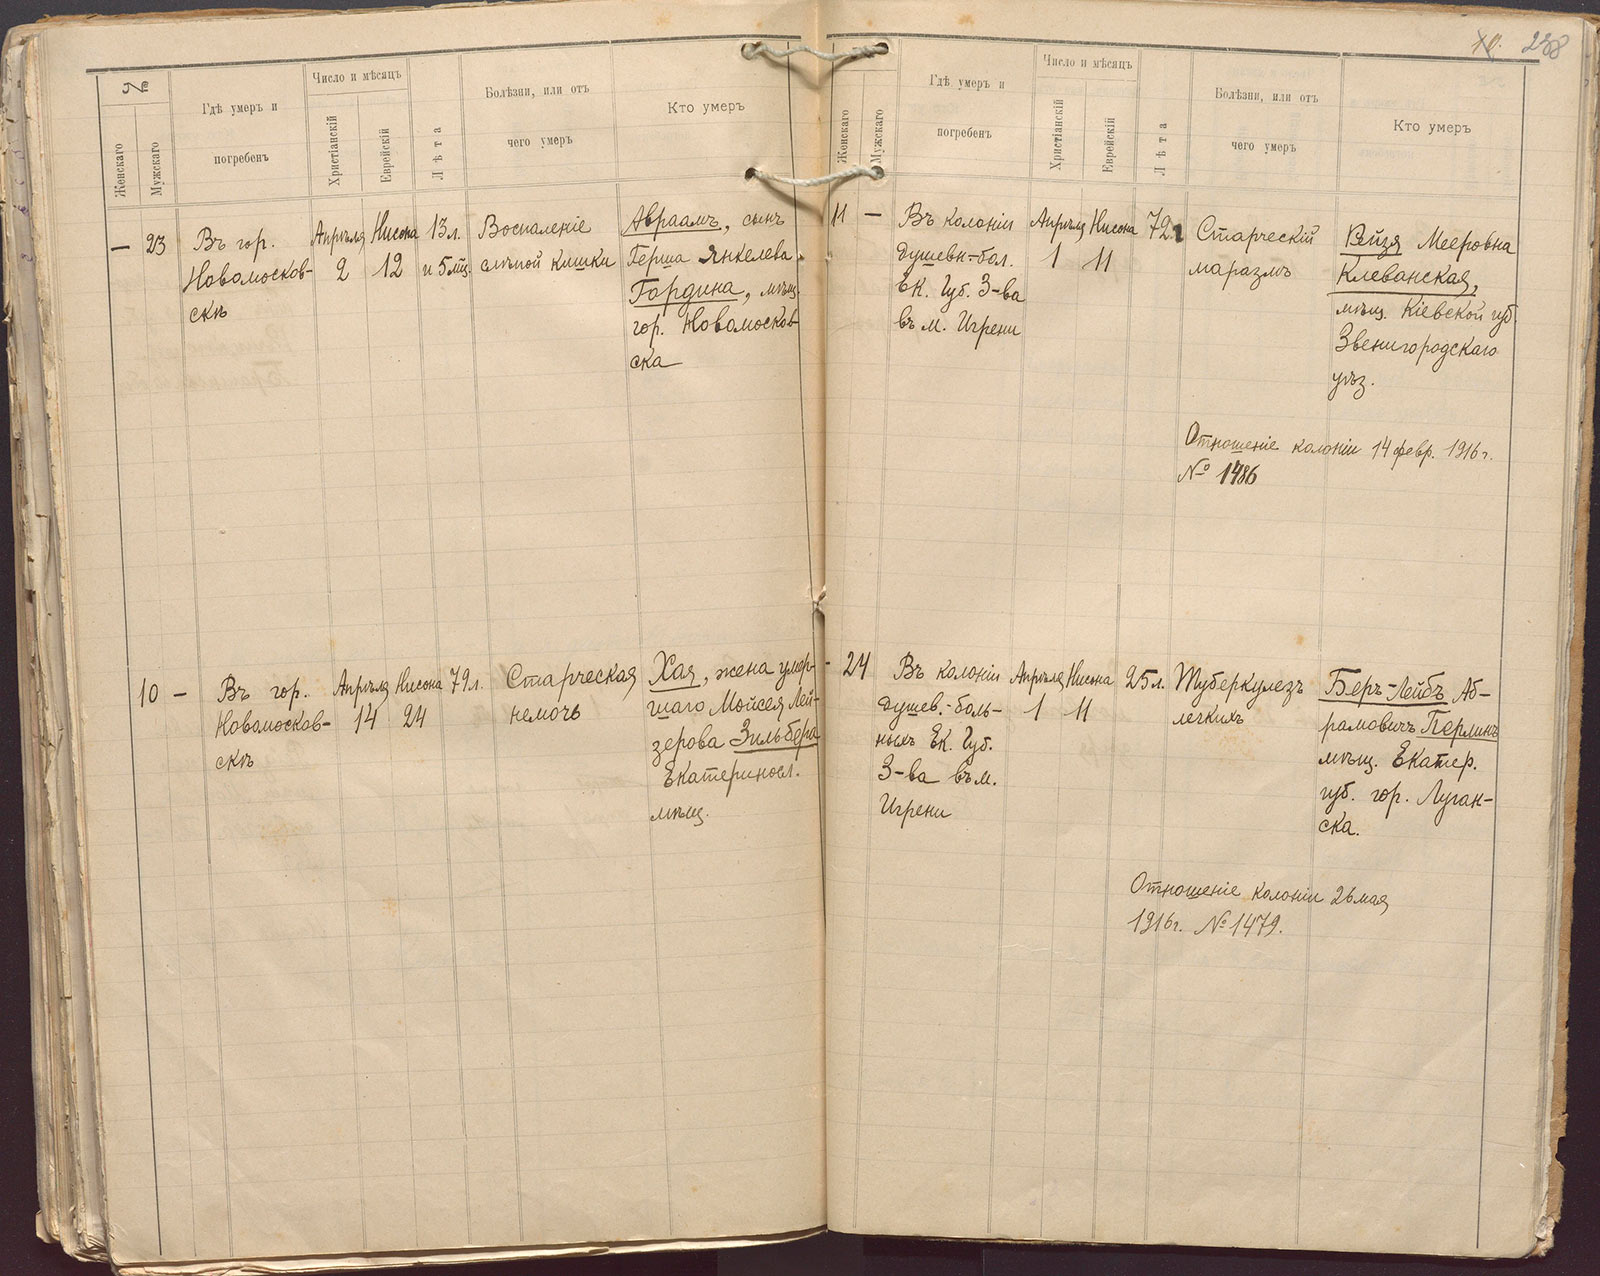 №
Женскаго
Мужскаго
Гдѣ умеръ и
погребенъ
Число и мѣсяцъ
Христіанскій
Еврейскій
Лѣта
Болѣзни, или отъ
чего умеръ
Кто умеръ
— 23
Въ гор.
Новомосков-
скѣ
Апрѣля
2
Нисона
12
13 л.
и 5 мѣц.
Воспаленіе
слѣпой кишки
Авраамъ, сынъ
Герша Янкелева
Гордина, мѣщ.
гор. Новомосков-
ска
10 —
Въ гор.
Новомосков-
скѣ
Апрѣля
14
Нисона
24
79 л.
Старческая
немочь
Хая, жена умер-
шаго Мойсея Лей-
зерова Зильбера
Екатериносл.
мѣщ.
238
Женскаго
Мужскаго
Гдѣ умеръ и
погребенъ
Число и мѣсяцъ
Христіанскій
Еврейскій
Лѣта
Болѣзни, или отъ
чего умеръ
Кто умеръ
11 —
Въ колоніи
душевн.-бол.
Ек. Губ. З-ва
въ м. Игрени
Апрѣля
1
Нисона
11
72
Старческій
маразмъ
Рейзя Мееровна
Клеванская,
мѣщ. Кіевской губ.
Звенигородскаго
уѣз.
Отношеніе колоніи 14 февр. 1916 г.
№ 1486
- 24
Въ колоніи
душев.-боль-
ныхъ Ек. Губ.
З-ва въ м.
Игрени
Апрѣля
1
Нисона
11
25 л.
Туберкулезъ
легкихъ
Беръ-Лейбъ Аб-
рамовичъ Перлинъ
мѣщ. Екатер.
губ. гор. Луган-
ска.
Отношеніе колоніи 26 мая
1916 г. № 1479.